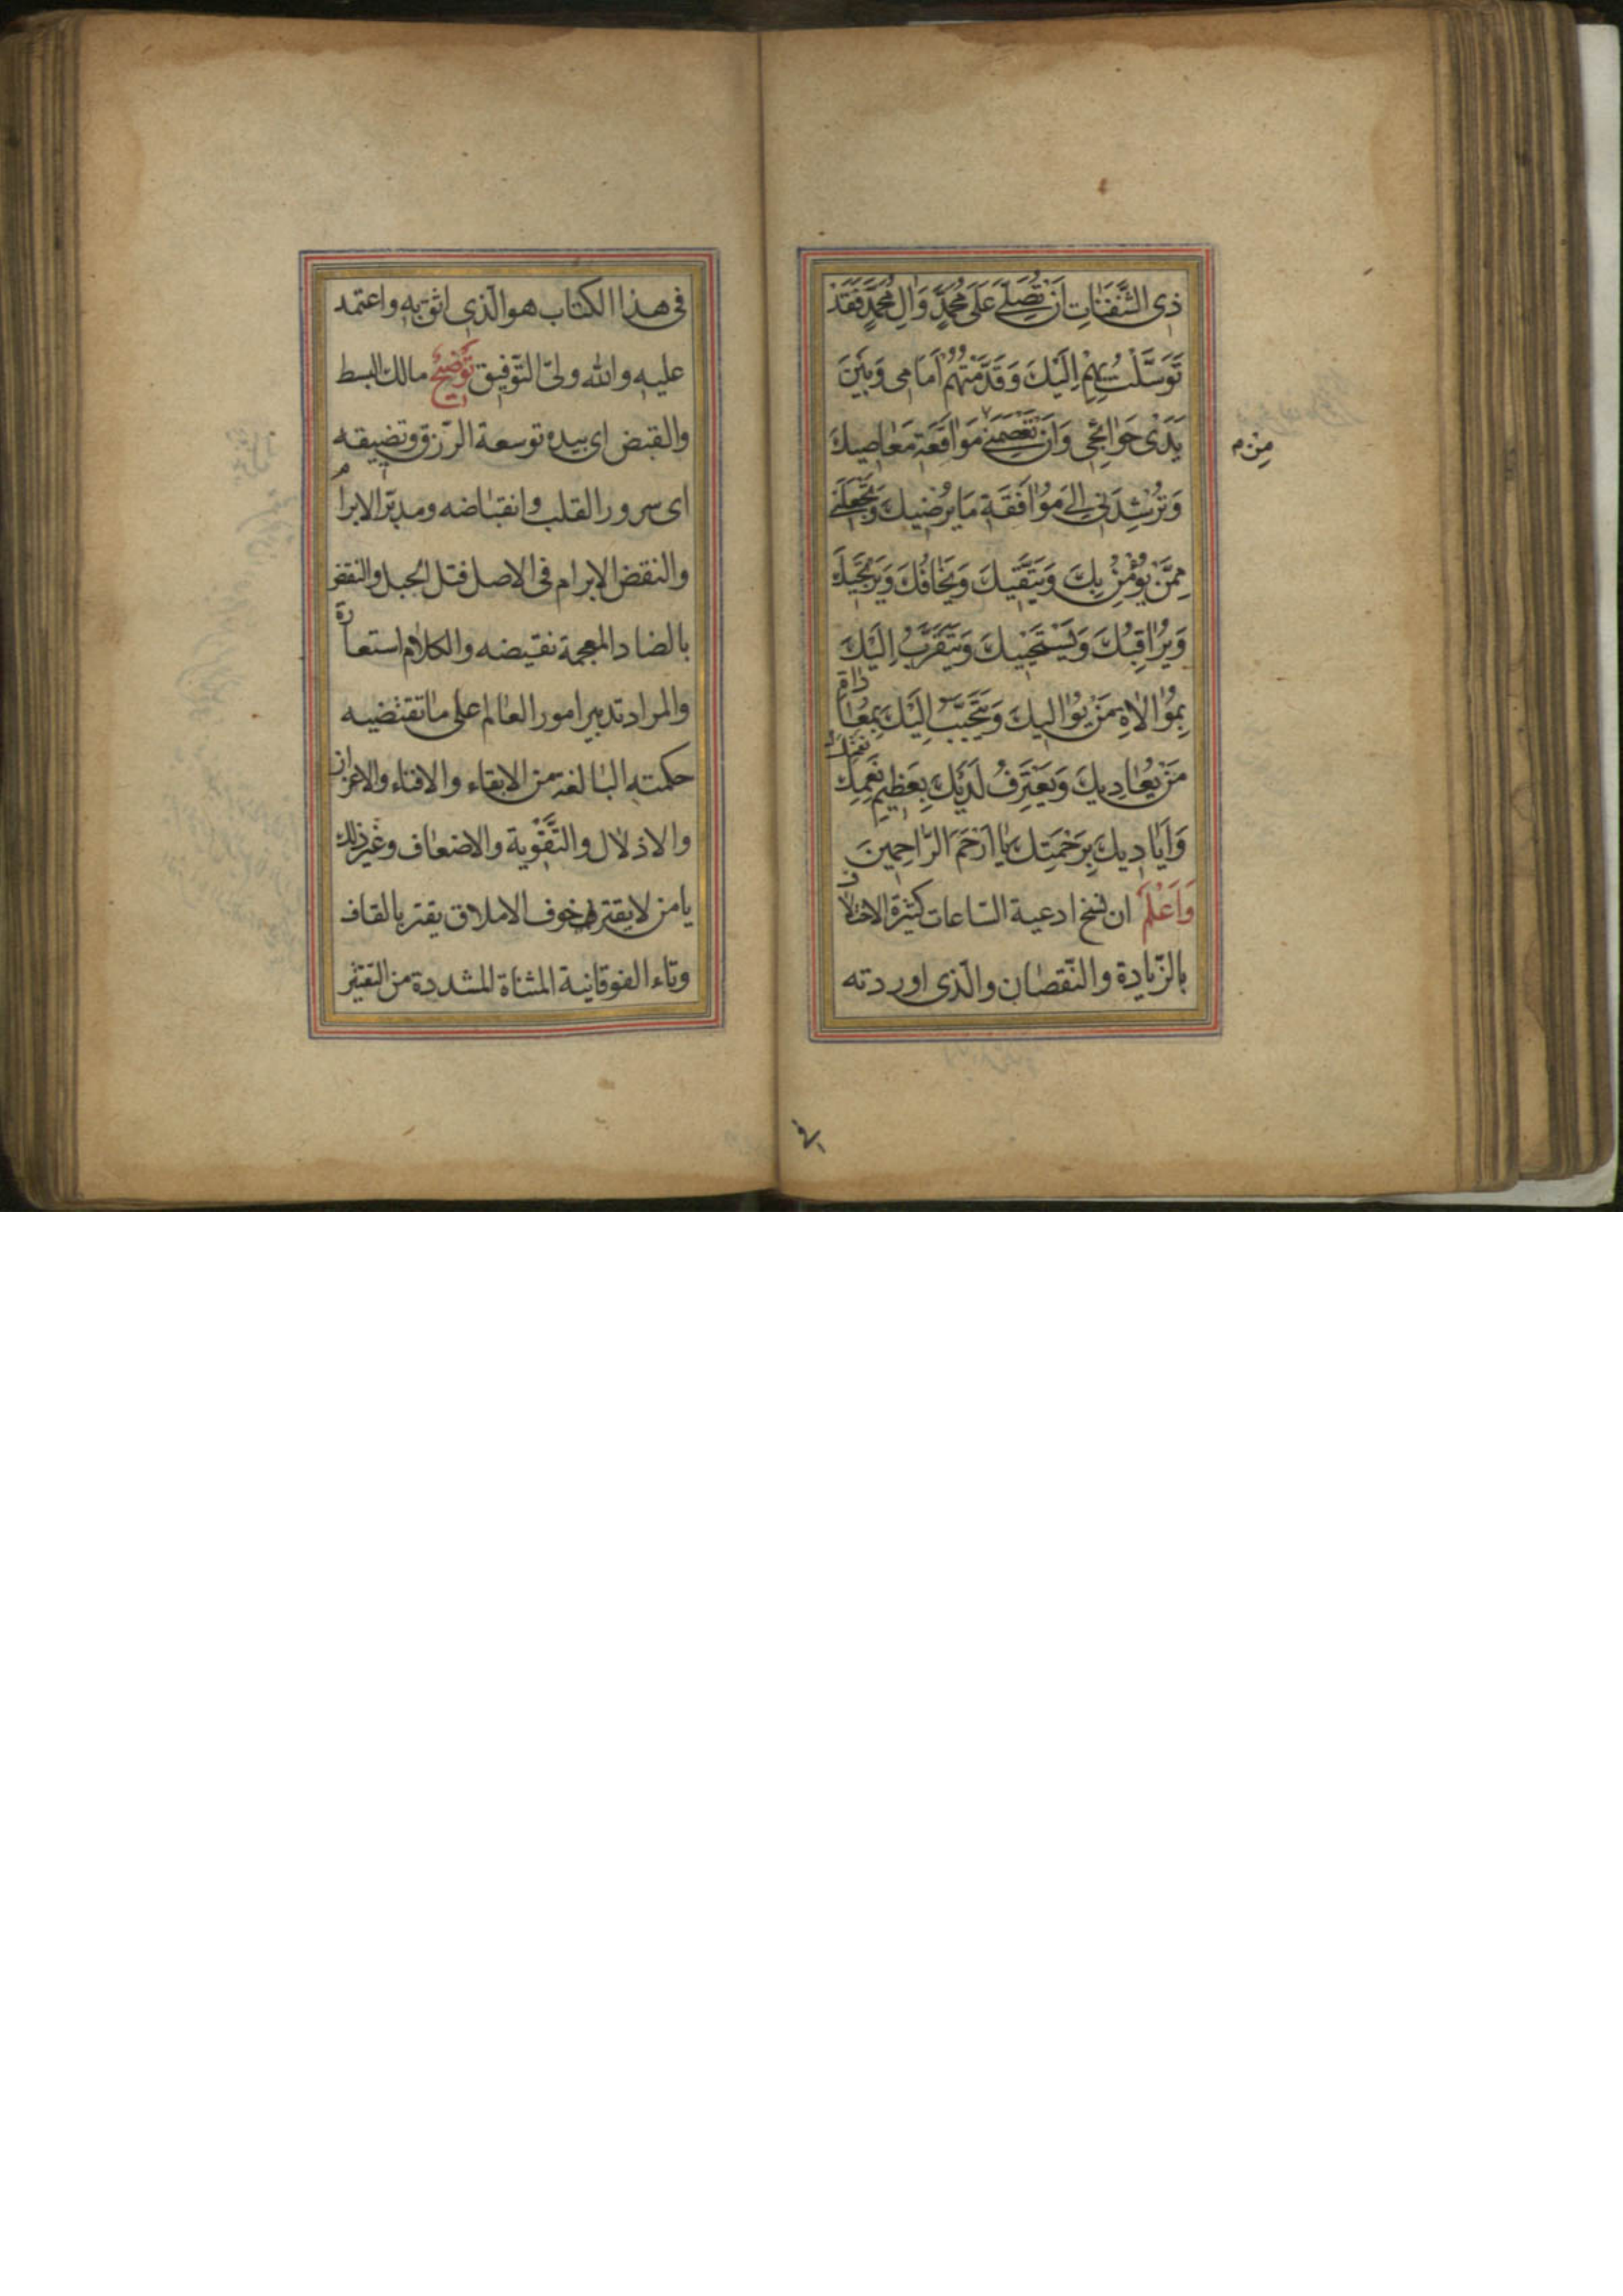 ذِى الثَّفَنَاتِ اَنْ تُصَلِّىَ عَلَى مُحَمَّدٍ وَالِ مُحَمَّدٍ فَقَدْ
تَوَسَّلْتُ بِهِمْ اِلَيْكَ وَقَدَّمْتُهُمْ اَمَامِى وَبَيْنَ
يَدَىْ حَوَائِجِى وَاَنْ تَعْصِمَنِى مَوَاقَعَةِ مَعَاصِيكَ
مِنْ م
وَتُرْشِدَنِى اِلَى مُوَافَقَةِ مَا يُرْضِيكَ وَتَجْعَلَنِى
مِمَّنْ يُؤْمِنُ بِكَ وَيَتَّقِيكَ وَيَخَافُكَ وَيَرْتَجِيكَ
وَيُرَاقِبُكَ وَيَسْتَحْيِيكَ وَيَتَقَرَّبُ اِلَيْكَ
بِمُوَالاةِ مَنْ يُوَالِيكَ وَيَتَحَبَّبُ اِلَيْكَ بِمُعَاداةِ
مَنْ يُعَادِيكَ وَيَعْتَرِفُ لَدَيْكَ بِعَظِيمِ نِعَمِكَ
وَاَيَادِيكَ بِرَحْمَتِكَ يَا اَرْحَمَ الرَّاحِمِينَ
وَاَعْلَمْ ان نسخ ادعية السّاعات كثيرة الاختلاف
بالزّيادة والنّقصان والّذى اوردته
فى هذا الكتاب هو الّذى اثق به واعتمد
عليه والله ولىّ التّوفيق تَوْضِيحٌ مالك البسط
والقبض اى بيده توسعة الرّزق وتضييقه
اى سرور القلب وانقباضه ومدبّر الابرام
والنقض الابرام فى الاصل فتل الحبل والنقض
بالضاد المعجمة نقيضه والكلام استعارة
والمراد تدبير امور العالم على ما تقتضيه
حكمته البالغة من الابقاء والافناء والاعزاز
والاذلال والتّقوية والاضعاف وغير ذلك
يا من لا يقتر خوف الاملاق يقتر بالقاف
وتاء الفوقانية المثناة المشددة من التقتير